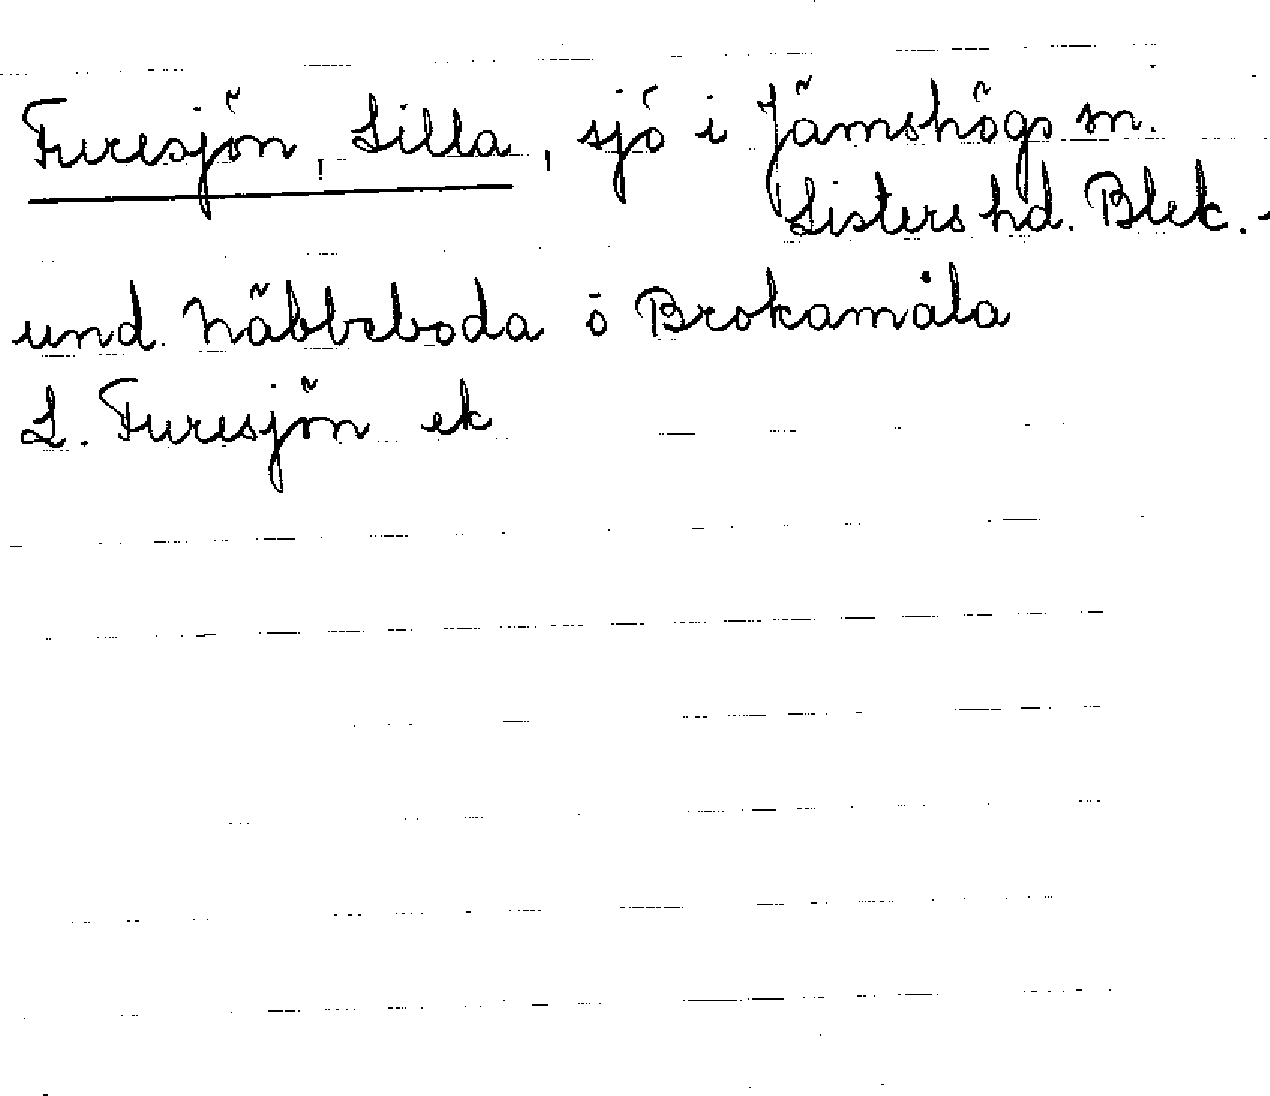 Furesjön, Lilla, sjö i Jämshögs sn.
Listers hd. Blek.
und. Näbbeboda ö Brokamåla
L. Furesjön ek